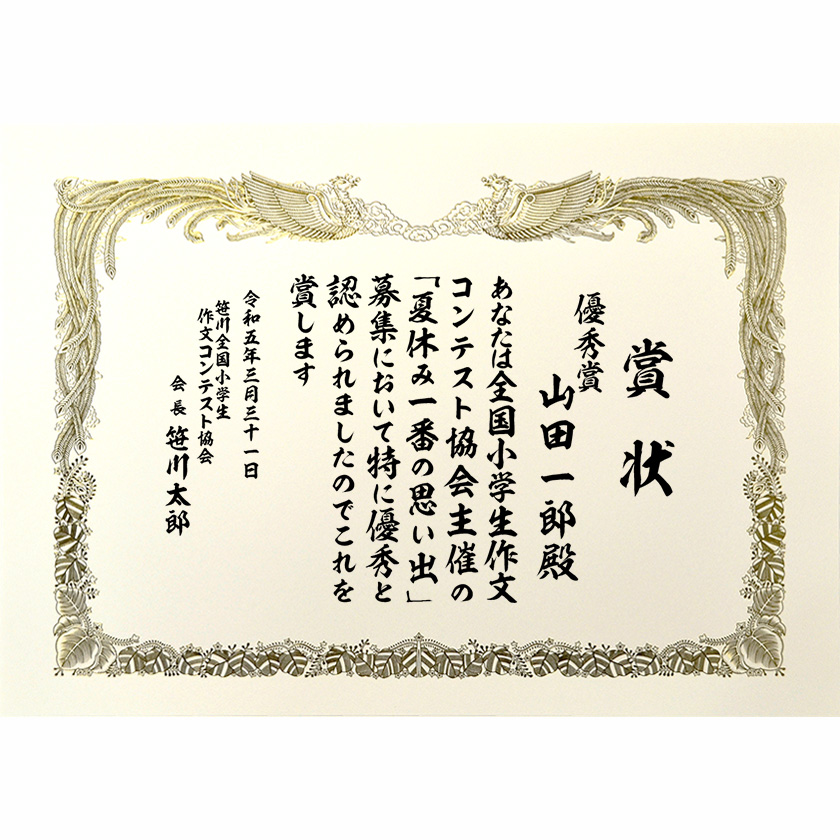 賞状
優秀賞
山田一郎殿
あなたは全国小学生作文
コンテスト協会主催の
「夏休み一番の思い出」
募集において特に優秀と
認められましたのでこれを
賞します
令和五年三月三十一日
笹川全国小学生
作文コンテスト協会
会長 笹川太郎